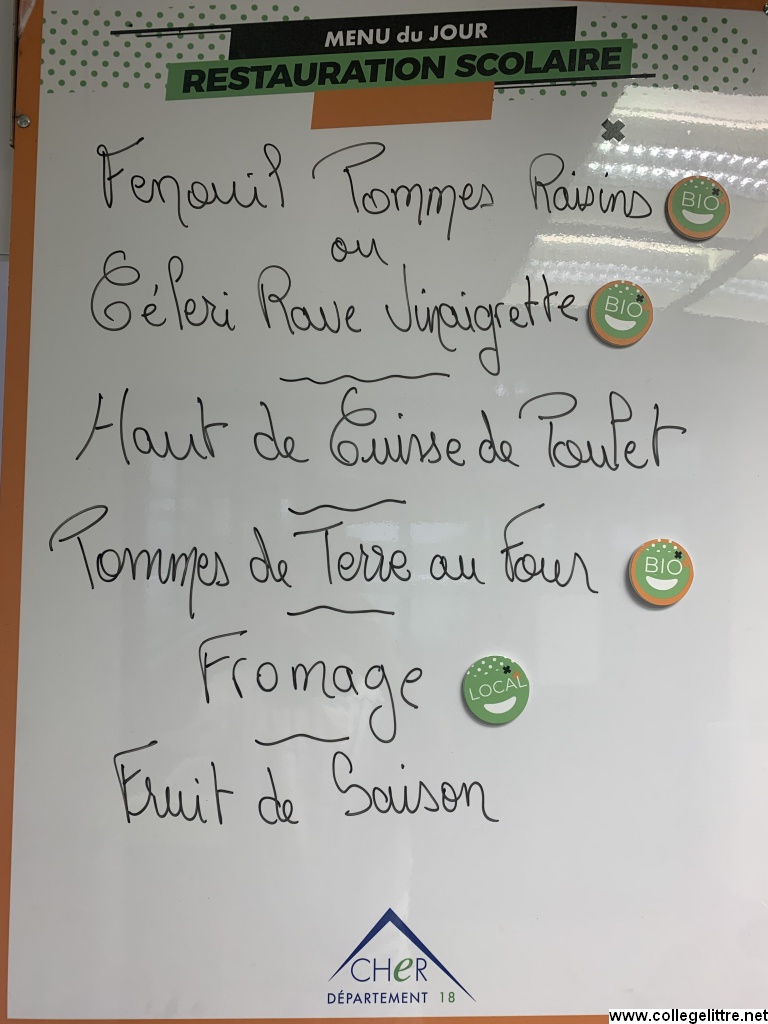 MENU du JOUR
RESTAURATION SCOLAIRE
Fenouil Pommes Raisins BIO
ou
Céleri Rave Vinaigrette BIO
Haut de Cuisse de Poulet
Pommes de Terre au Four BIO
Fromage LOCAL
Fruit de Saison
CHeR
DÉPARTEMENT 18
www.collegelittre.net